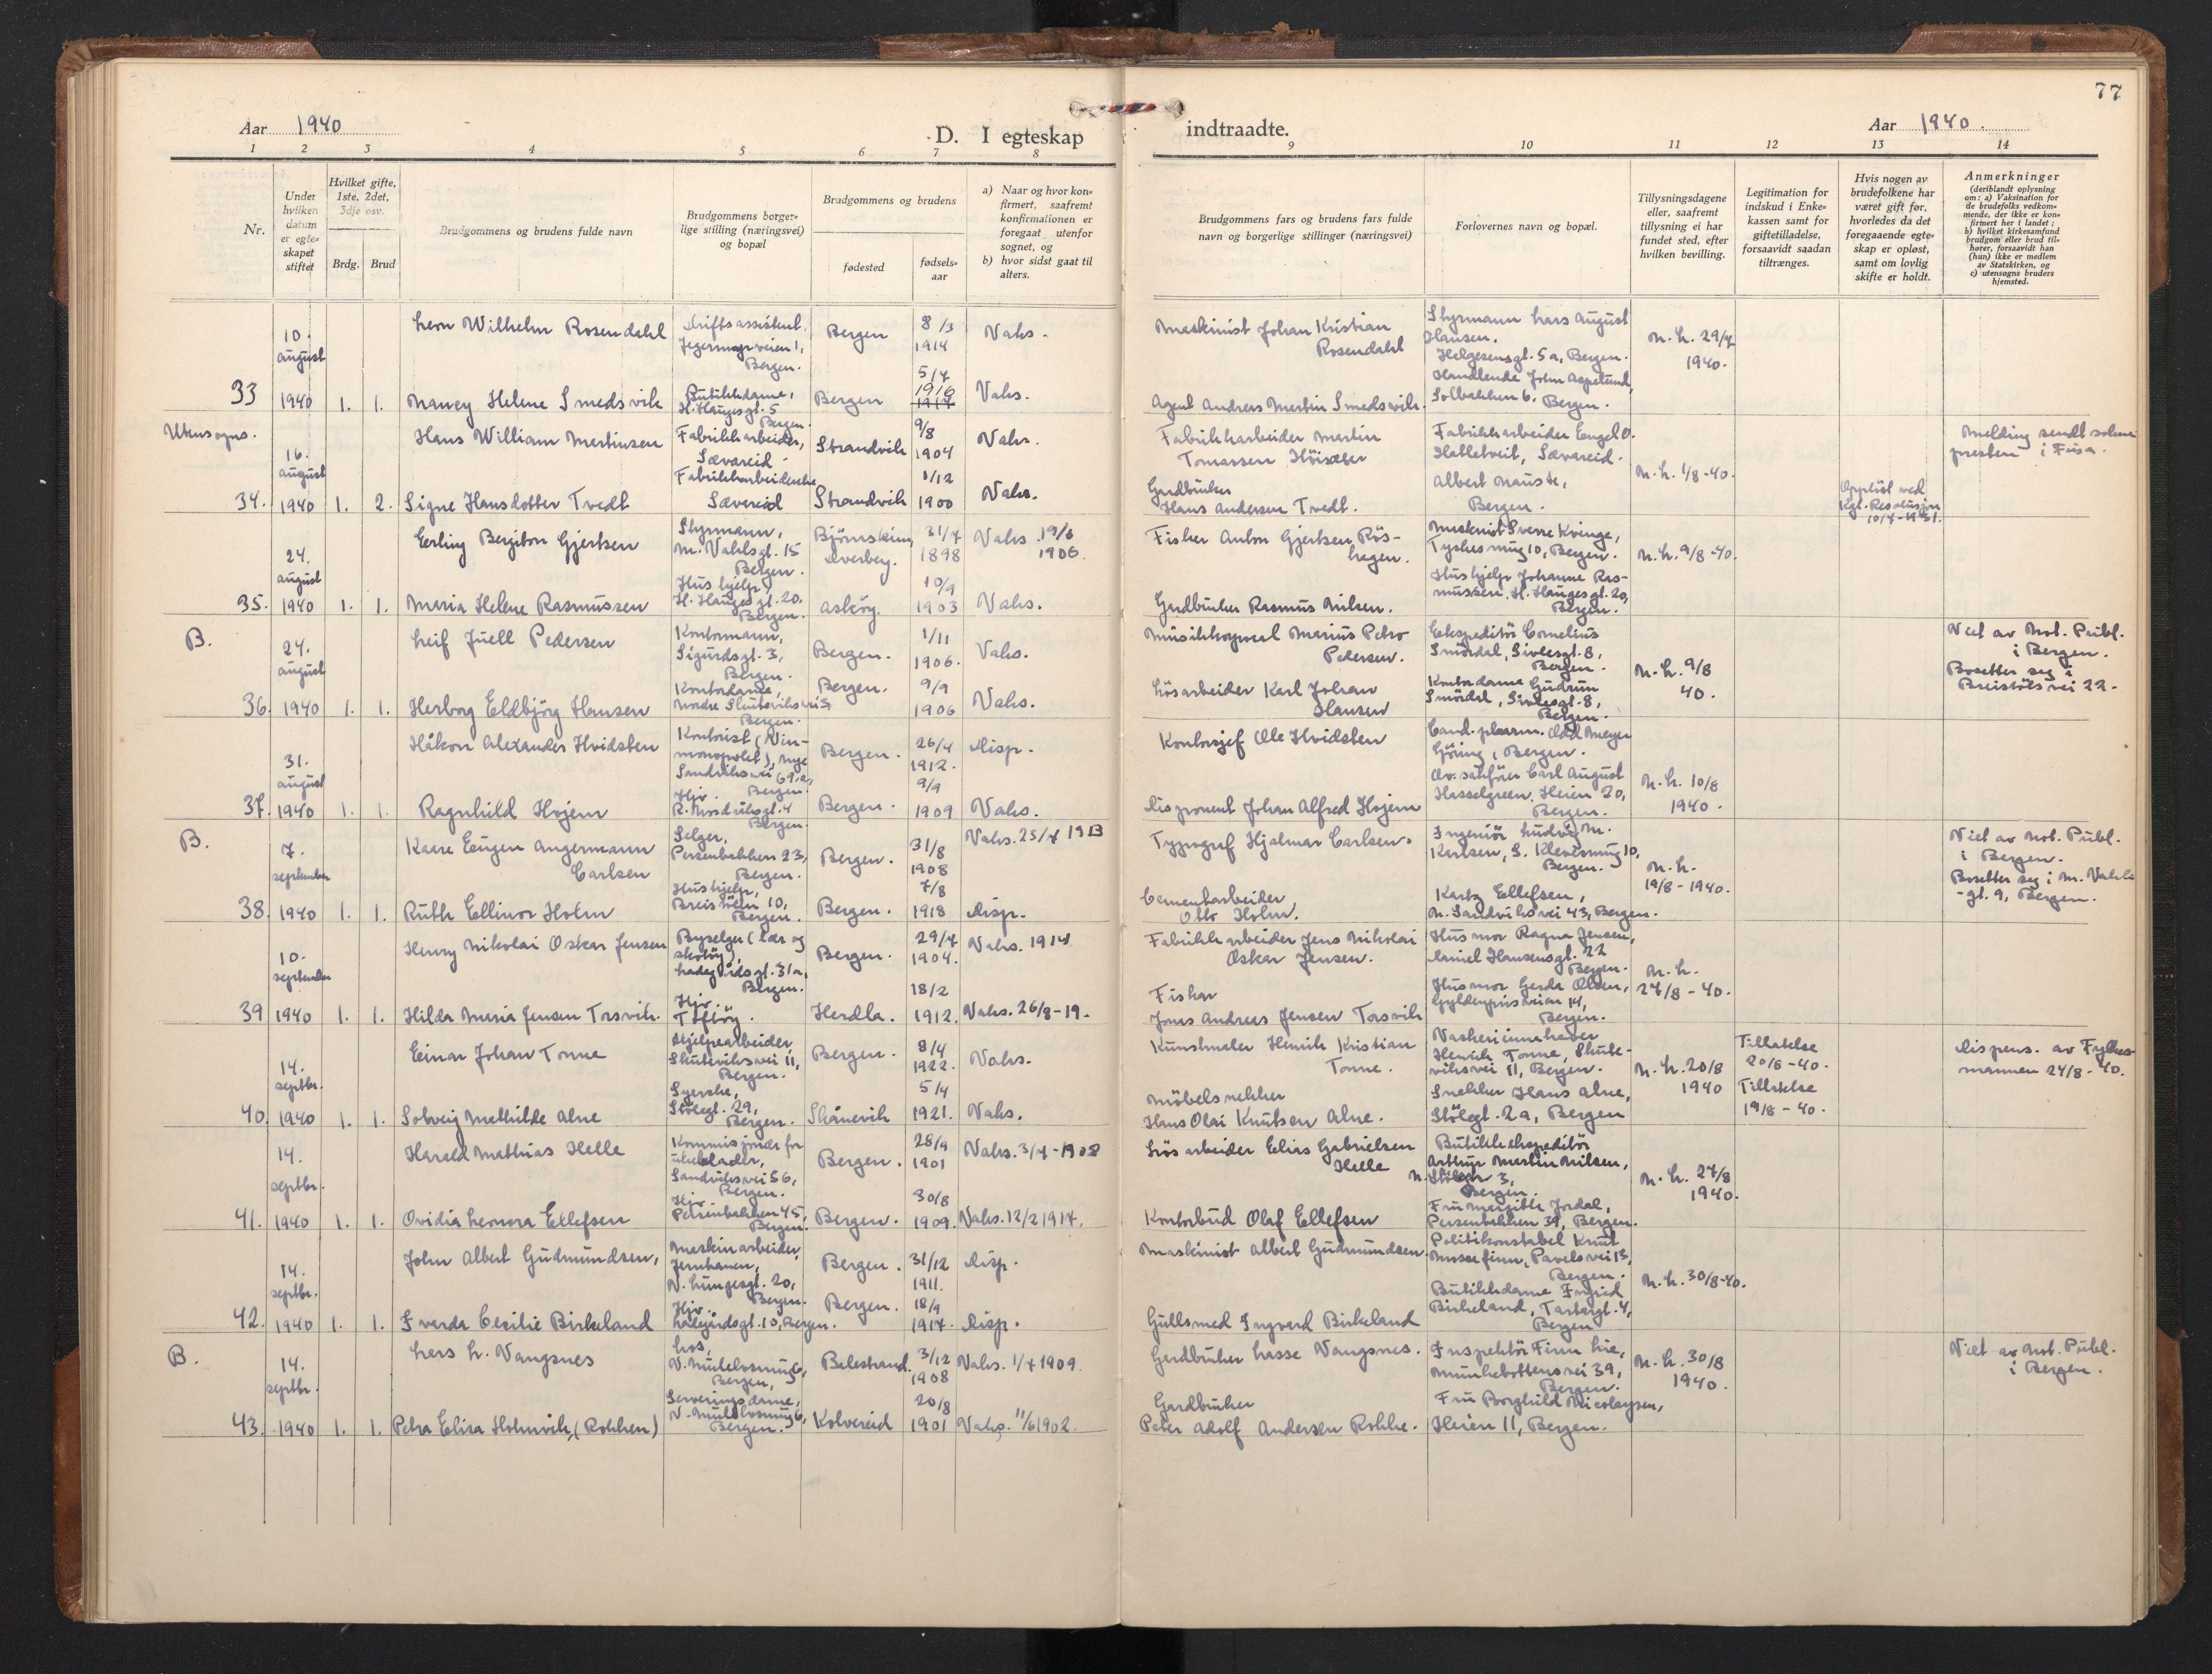 77
Aar 1940
D. I egteskap
indtraadte.
Aar 1940.
1 2 3 4 5 6 7 8 9 10 11 12 13 14
Nr.
Under hvilken datum er egteskapet stiftet
Hvilket gifte, 1ste, 2det, 3dje osv.
Brdg. Brud
Brudgommens og brudens fulde navn
Brudgommens borgerlige stilling (næringsvei) og bopæl
Brudgommens og brudens
fødested
fødselsaar
a) Naar og hvor konfirmert, saafremt konfirmationen er foregaat utenfor sognet, og
b) hvor sidst gaat til alters.
Brudgommens fars og brudens fars fulde navn og borgerlige stillinger (næringsvei)
Forlovernes navn og bopæl.
Tillysningsdagene eller, saafremt tillysning ei har fundet sted, efter hvilken bevilling.
Legitimation for indskud i Enkekassen samt for giftetilladelse, forsaavidt saadan tiltrænges.
Hvis nogen av brudefolkene har været gift før, hvorledes da det foregaaende egteskap er opløst, samt om lovlig skifte er holdt.
Anmerkninger
(deriblandt oplysning om: a) Vaksination for de brudefolks vedkommende, der ikke er konfirmert her i landet; b) hvilket kirkesamfund brudgom eller brud tilhører, forsaavidt han (hun) ikke er medlem av Statskirken, og c) utensogns bruders hjemsted.
33
10. august 1940
1. 1.
Leon Wilhelm Rosendahl
Driftsassistent,
Bergen.
Bergen
8/3 1914
Vaks.
Maskinist Johan Kristian Rosendahl
Styrmann Lars August Hansen,
Helgesensgt. 5a, Bergen.
N. h. 29/7 1940.
Nancy Helene Smedsvik
Butikkdame,
H. Haugesgt. 5
Bergen.
Bergen
5/4 1916
Vaks.
Agent Andreas Martin Smedsvik.
Handlende John Aspelund,
Solbakken 6, Bergen.
Utensogns.
34.
16. august 1940
1. 2.
Hans William Martinsen
Fabrikkarbeider,
Sævareid
Strandvik
9/8 1904
Vaks.
Fabrikkarbeider Martin
Tomassen
Fabrikkarbeider Engel O.
Hatletveit, Sævareid.
N. h. 1/8-40.
Melding sendt sokne
presten i Fusa.
Signe Hansdotter Tvedt
Fabrikkarbeiderske
Sævareid
Strandvik
1/12 1900
Vaks.
Gardbruker
Hans Andersen Tvedt.
Albert Nauste,
Bergen.
Oppløst ved
Kgl. Resolusjon
10/7-1931.
35.
24. august 1940
1. 1.
Erling Bergiton Gjertsen
Styrmann,
M. Vahlsgt. 15
Bergen.
31/7 1898
Vaks. 19/8 1906.
Fisker Anton Gjertsen
Maskinist Sverre Kvinge,
Bergen.
N. h. 9/8-40.
Maria Helene Rasmussen
Hushjelp,
H. Haugesgt. 20,
Bergen.
Askøy.
10/9 1903
Vaks.
Gardbruker Rasmus Nilsen.
Hushjelp Johanne Rasmussen, H. Haugesgt. 20,
Bergen.
B.
36.
24. august 1940
1. 1.
Leif Juell Pedersen
Kontormann,
Sigurdsgt. 3,
Bergen.
Bergen.
1/11 1906.
Vaks.
Marius Petro
Pedersen.
Ekspeditør Cornelius
Smørdal, Sivlesgt. 8,
Bergen.
N. h. 9/8 40.
Viet av Not. Publ.
i Bergen.
Bosetter seg i
Breistølsvei 22.
Herborg Eldbjørg Hansen
Kontordame,
Bergen.
Bergen.
9/9 1906
Vaks.
Løsarbeider Karl Johan
Hansen
Kontordame Gudrun
Smørdal, Sivlesgt. 8,
Bergen.
37.
31. august 1940
1. 1.
Håkon Alexander Hvidsten
Kontorist (Vinmonopolet), Nye
Sandviksvei 69,a,
Bergen.
Bergen.
26/4 1912.
Disp.
Kontorsjef Ole Hvidsten
Cand. pharm. Odd Meyer
Göring, Bergen.
N. h. 10/8 1940.
Ragnhild Hojem
Hjv.
R. Nordråksgt. 4
Bergen.
Bergen.
9/9 1909
Vaks.
Disponent Johan Alfred Hojem
Ov. sakfører Carl August
Hasselgreen, Heien 20,
Bergen.
B.
38.
7. september 1940
1. 1.
Kaare Eugen Angermann
Carlsen
Selger,
Persenbakken 23,
Bergen.
Bergen.
31/8 1908
Vaks. 25/7 1913
Typograf Hjalmar Carlsen.
Ingeniør Ludvig M.
Karlsen,
Bergen.
N. h. 19/8-1940.
Viet av Not. Publ.
i Bergen.
Bosetter seg i M. Vahls
-gt. 9, Bergen.
Ruth Ellinor Holm
Hushjelp,
Breistølen 10,
Bergen.
Bergen.
7/8 1918
Disp.
Cementarbeider
Otto Holm.
Ellefsen,
N. Sandviksvei 43, Bergen.
39
10. september 1940
1. 1.
Henry Nikolai Oskar Jensen
Byselger (lær og
skotøy),
Ladegårdsgt. 31a,
Bergen.
Bergen.
29/7 1904.
Vaks. 1914
Fabrikkarbeider Jens Nikolai
Oskar Jensen.
Husmor Ragna Jensen,
Daniel Hansensgt. 22
Bergen.
N. h. 27/8-40.
Hilda Maria Jensen Torsvik.
Hjv.
Toftöy.
Herdla.
18/2 1912.
Vaks. 26/8-19.
Fisker
Jonas Andreas Jensen Torsvik
Husmor Gerda Olsen,
Gyldenprisveien 14,
Bergen.
40.
14. septbr. 1940
1. 1.
Einar Johan Tonne
Hjelpearbeider,
Skuteviksvei 11,
Bergen.
Bergen.
8/4 1922.
Vaks.
Kunstmaler Henrik Kristian
Tonne.
Vaskeriinnehaver
Henrik Tonne, Skuteviksvei 11, Bergen.
N. h. 20/8 1940
Tillatelse
20/8-40.
Tillatelse
19/8-40.
Dispens. av Fylkesmannen 24/8-40.
Solveig Mathilde Alne
Syerske,
Stølegt. 29,
Bergen.
Skånevik
5/4 1921.
Vaks.
Møbelsnekker
Hans Olai Knutsen Alne.
Snekker Hans Alne,
Stölegt. 2a, Bergen
41.
14. septbr. 1940
1. 1.
Harald Mathias Helle
Kommisjonær for
ukeblader,
Sandviksvei 56,
Bergen.
Bergen.
28/9 1901
Vaks. 3/7-1908
Løsarbeider Elias Gabrielsen
Helle
Butikkekspeditör
Arthur Martin Nilsen,
Bergen.
N. h. 27/8 1940.
Ovidia Leonora Ellefsen
Hjv.
Bergen.
Bergen.
30/8 1909.
Vaks. 12/2 1917.
Kontorbud Olaf Ellefsen
Fru Margithe Jordal,
Persenbakken 39, Bergen.
42.
14. septbr. 1940
1. 1.
John Albert Gudmundsen,
Maskinarbeider,
V. Lungesgt. 20,
Bergen.
Bergen.
31/12 1911.
Disp.
Maskinist Albert Gudmundsen.
Politikonstabel Knut
Bergen.
N. h. 30/8-40.
Svarda Cecilie Birkeland
Hjv.
Ladegårdsgt. 10, Bergen.
Bergen.
18/9 1917.
Disp.
Gullsmed Ingvard Birkeland
Butikkdame Ingrid
Birkeland, Tartargt. 4,
Bergen
B.
43.
14. septbr. 1940
1. 1.
Lars L. Vangsnes
Los,
Bergen,
Balestrand.
3/12 1908
Vaks. 1/7 1909.
Gardbruker Lasse Vangsnes.
Inspektör Finn Lie,
Munkebottensvei 39,
Bergen.
N. h. 30/8 1940.
Viet av Not. Publ.
i Bergen.
Petra Elisa Holmvik, (Rokken)
Serveringsdame,
Bergen.
Kolvereid
20/8 1901
Vaks. 11/6 1902.
Gardbruker
Peter Adolf Andersen Rokke.
Fru Borghild Nicolaysen,
Heien 11, Bergen.